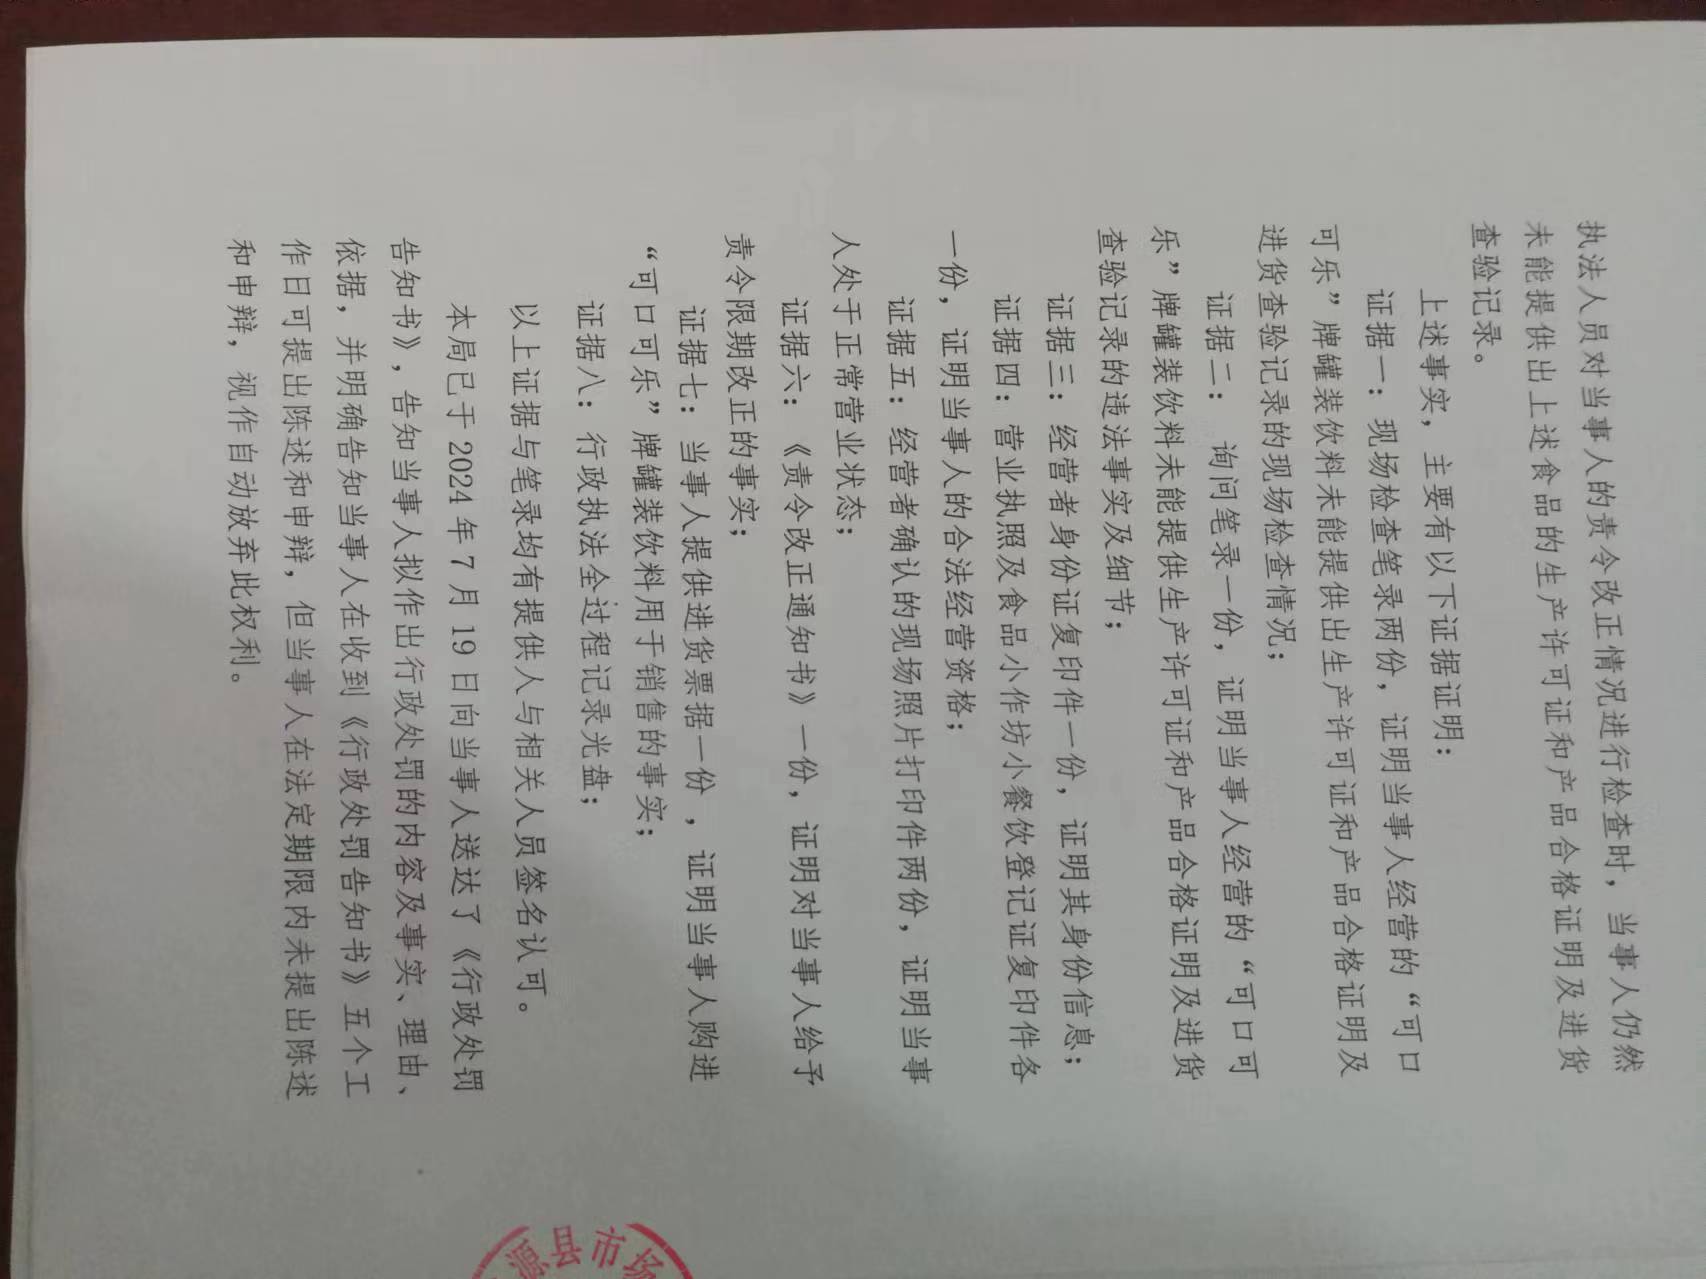 执法人员对当事人的责令改正情况进行检查时，当事人仍然
未能提供出上述食品的生产许可证和产品合格证明及进货
查验记录。
上述事实，主要有以下证据证明：
证据一：现场检查笔录两份，证明当事人经营的“可口
可乐”牌罐装饮料未能提供出生产许可证和产品合格证明及
进货查验记录的现场检查情况；
证据二：询问笔录一份，证明当事人经营的“可口可
乐”牌罐装饮料未能提供生产许可证和产品合格证明及进货
查验记录的违法事实及细节；
证据三：经营者身份证复印件一份，证明其身份信息；
证据四：营业执照及食品小作坊小餐饮登记证复印件各
一份，证明当事人的合法经营资格；
证据五：经营者确认的现场照片打印件两份，证明当事
人处于正常营业状态；
证据六：《责令改正通知书》一份，证明对当事人给予
责令限期改正的事实；
证据七：当事人提供进货票据一份，证明当事人购进
“可口可乐”牌罐装饮料用于销售的事实；
证据八：行政执法全过程记录光盘；
以上证据与笔录均有提供人与相关人员签名认可。
本局已于2024年7月19日向当事人送达了《行政处罚
告知书》，告知当事人拟作出行政处罚的内容及事实、理由、
依据，并明确告知当事人在收到《行政处罚告知书》五个工
作日可提出陈述和申辩，但当事人在法定期限内未提出陈述
和申辩，视作自动放弃此权利。
源县市场